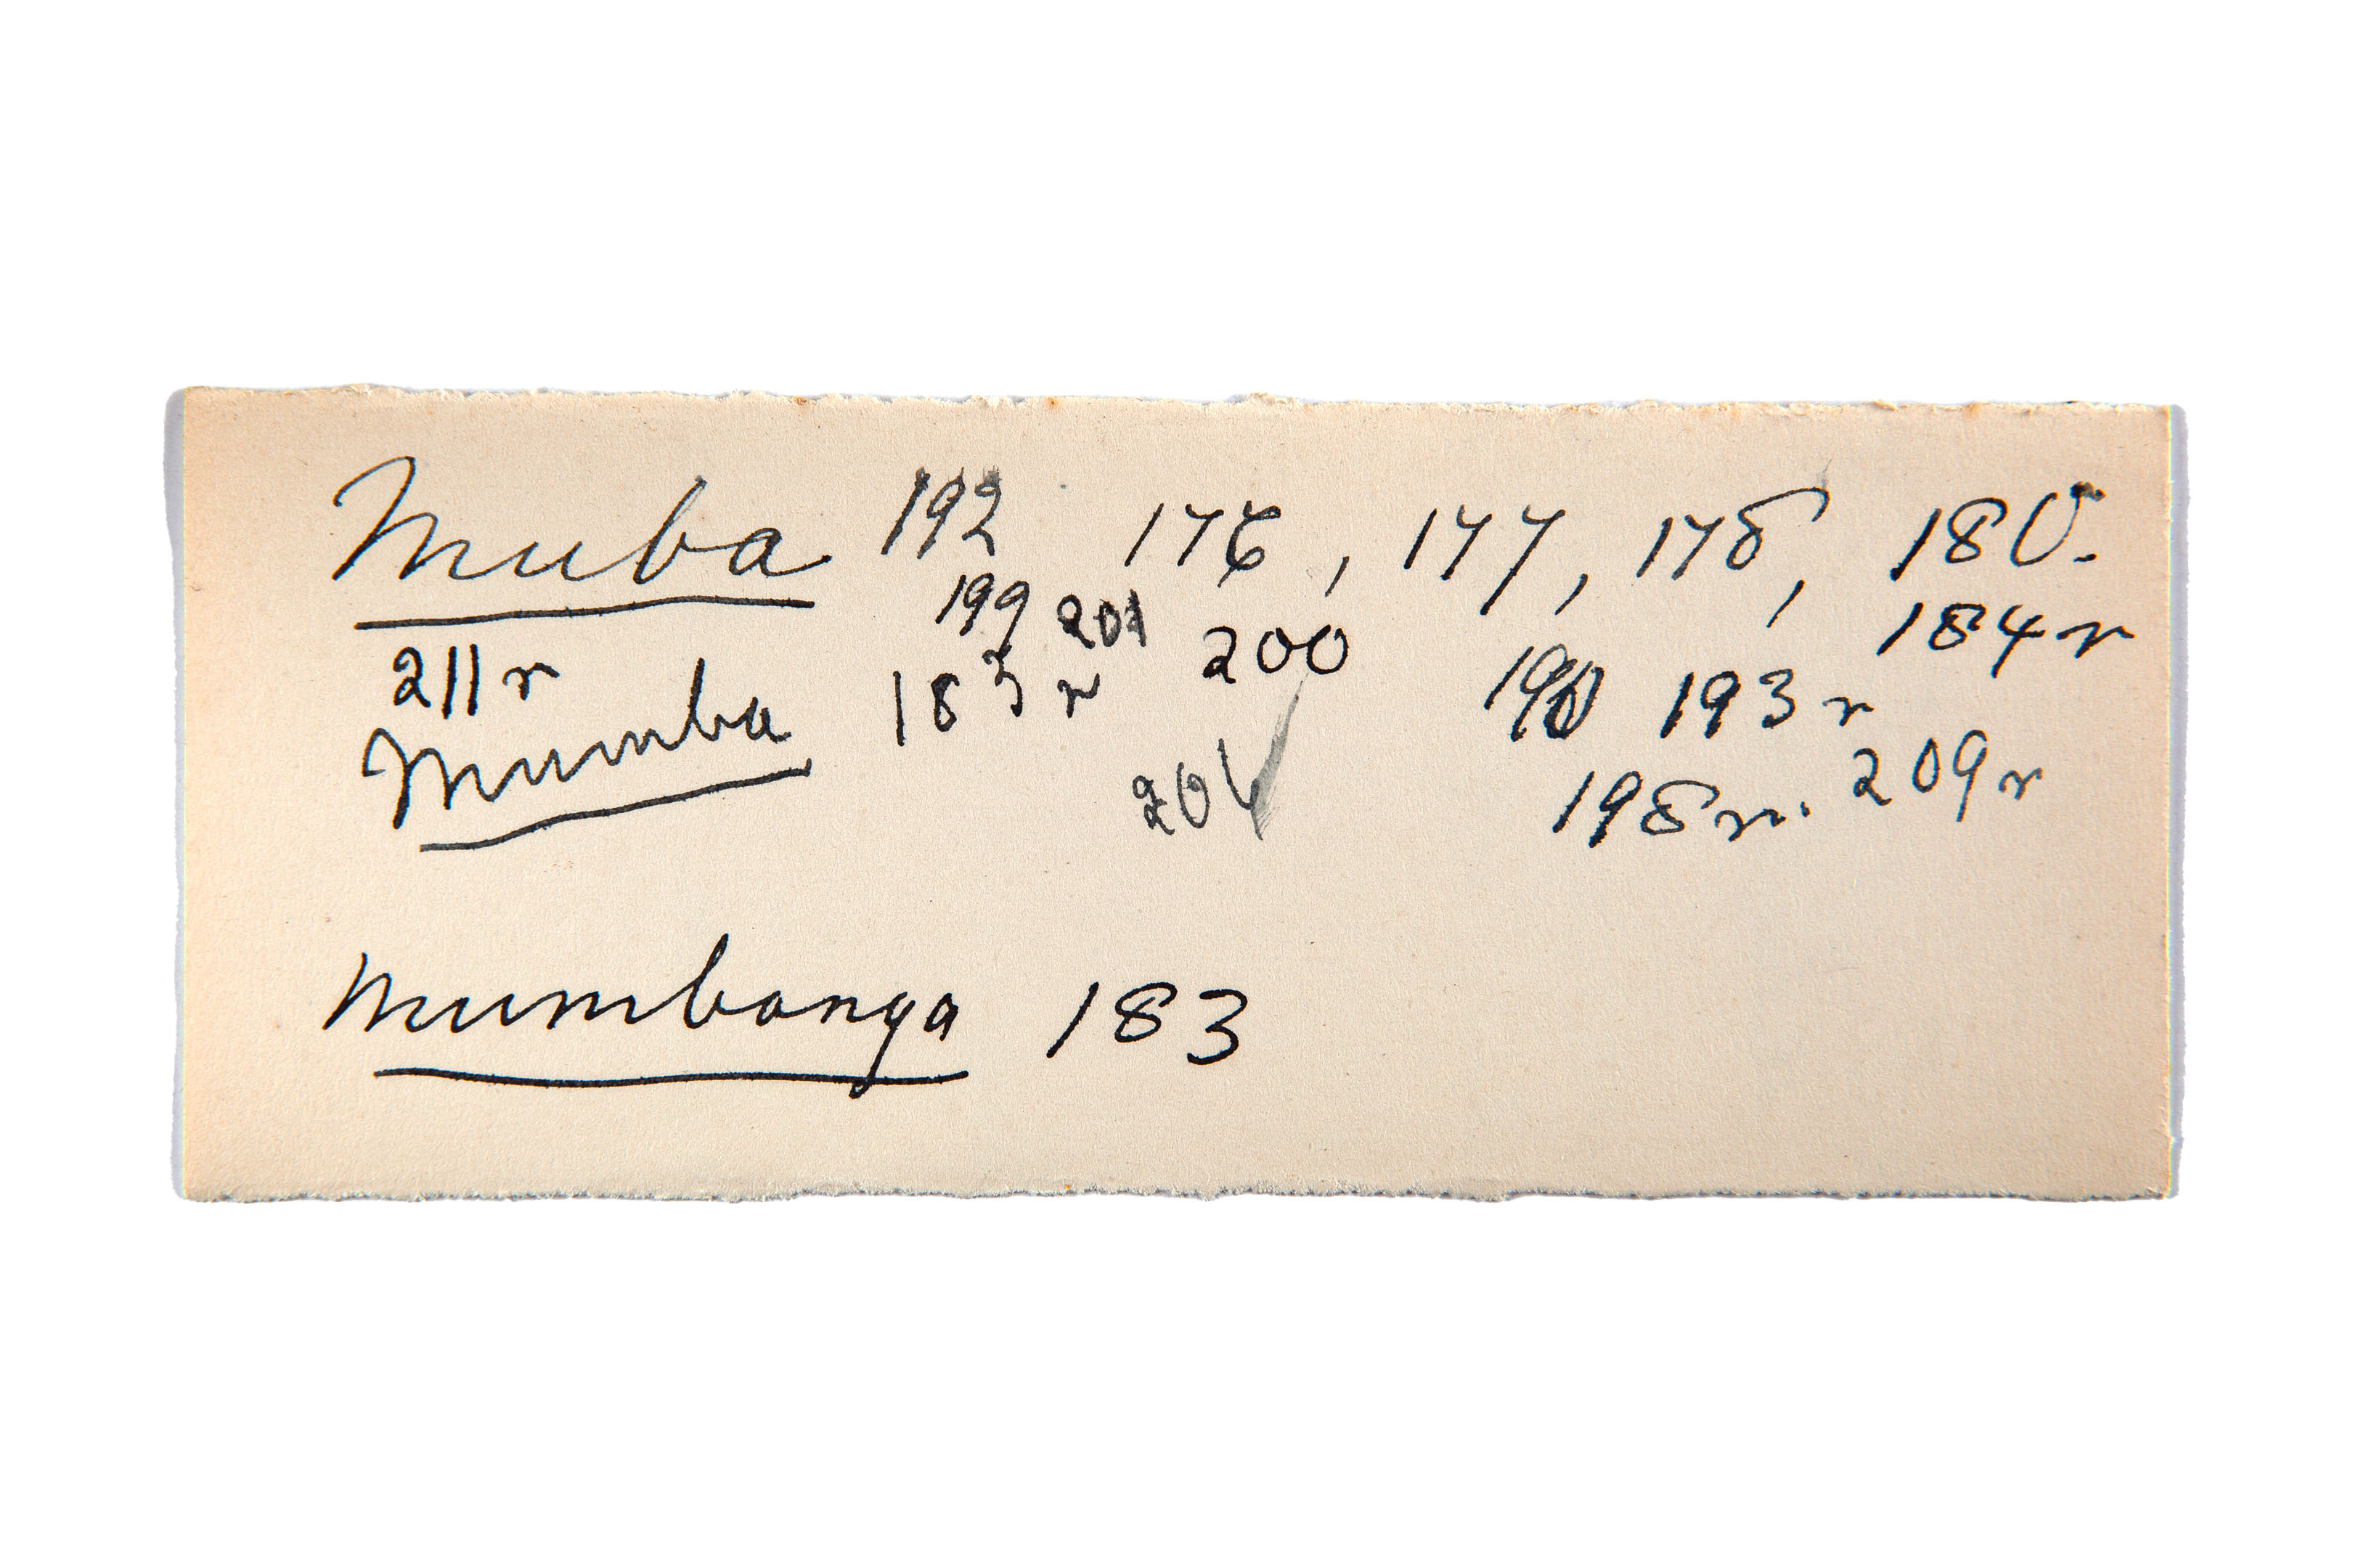 Muba 192 176, 177, 178, 180.
199 201 200 184r
211r
Mumba 183r 190 193r
198r. 209r
Mumbanga 183